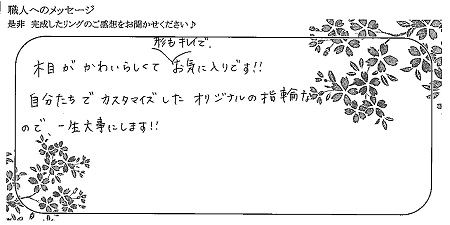 職人へのメッセージ
是非 完成したリングのご感想をお聞かせください♪
形もキレイで、
木目が かわいらしくて お気に入りです!!
自分たちで カスタマイズした オリジナルの指輪な
ので、一生大事にします!!